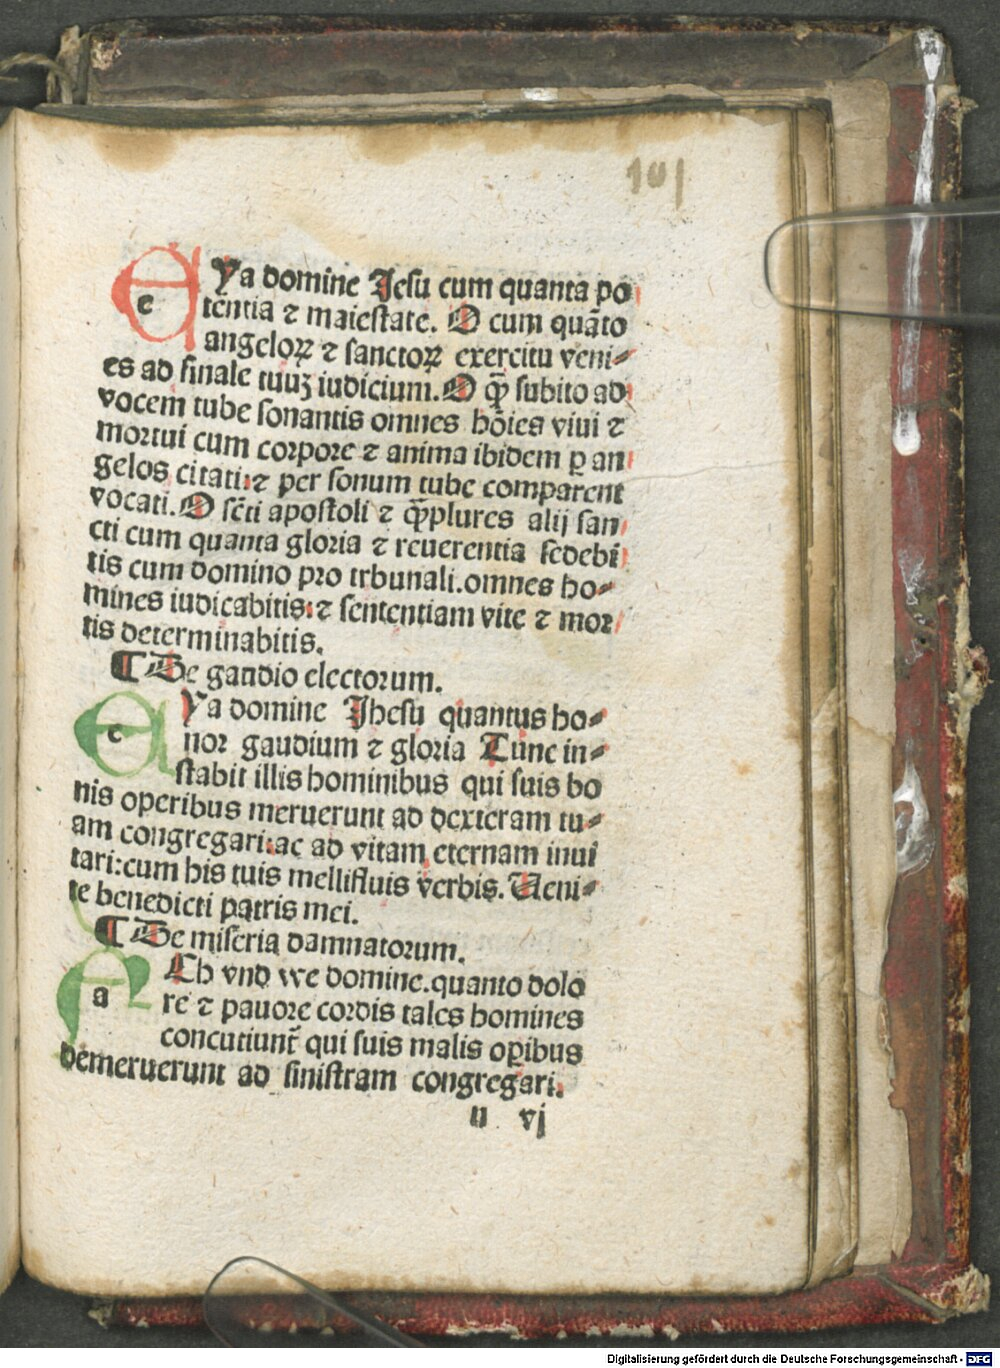 101
EYa domine Jesu cum quanta po
tentia ⁊ maiestate. O cum quāto
angeloꝝ ⁊ sanctoꝝ exercitu veni⸗
es ad finale tuuꝫ iudicium. O ꝙ̄ subito ad
vocem tube sonantis omnes hōies viui ⁊
mortui cum corpore ⁊ anima ibidem ꝑ an
gelos citati:⁊ per sonum tube comparent
vocati. O scti apostoli ⁊ ꝙ̄plures alij san
cti cum quanta gloria ⁊ reuerentia sedebi
tis cum domino pro trbunali.omnes ho⸗
mines iudicabitis:⁊ sententiam vite ⁊ mor
tis determinabitis.
¶ De gaudio electorum.
EYa domine Jhesu quantus ho⸗
nor gaudium ⁊ gloria Tunc in⸗
stabit illis hominibus qui suis bo
nis operibus meruerunt ad dexteram tu⸗
am congregari:ac ad vitam eternam inui
tari:cum his tuis mellifluis verbis. Ueni⸗
te benedicti patris mei.
¶ De miseria damnatorum.
ACh vnd we domine.quanto dolo
re ⁊ pauore cordis tales homines
concutiunt᷑ qui suis malis oꝑibus
demeruerunt ad sinistram congregari.
u vj
Digitalisierung gefördert durch die Deutsche Forschungsgemeinschaft - DFG